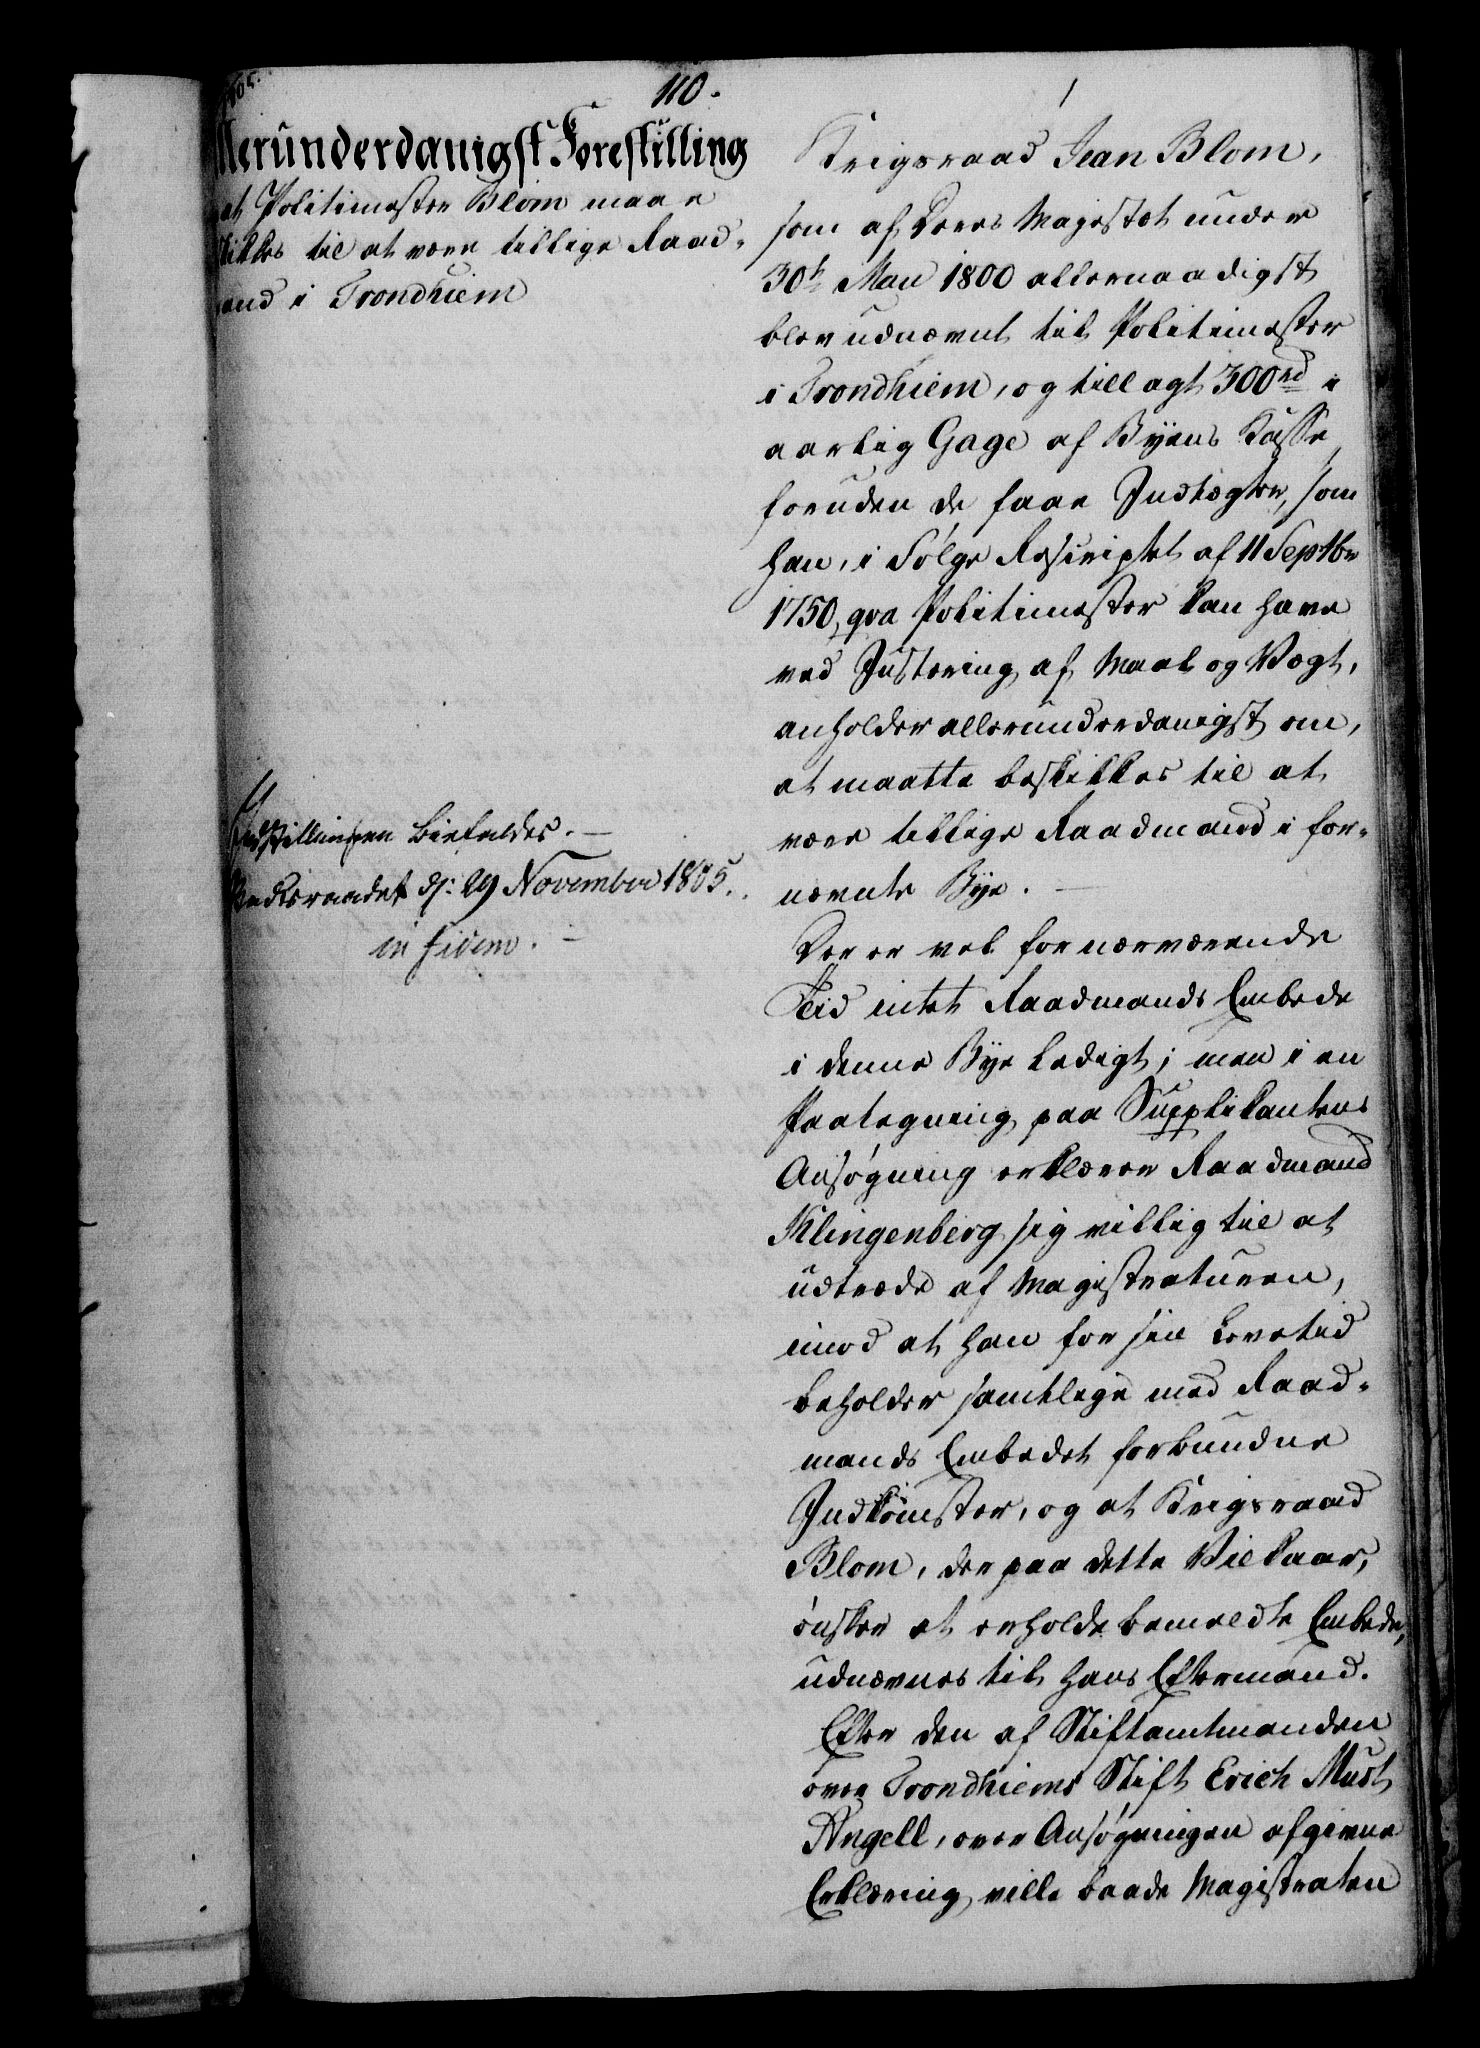 1805.
110.
1
Allerunderdanigst Forestilling
at Politimester Blom maae
skikkes til at være tillige Raad-
mand i Trondhiem
Indstillingen Biefaldes. —
Geheimeraadet d: 29 November 1805.
in fidem. —
Krigsraad Jean Blom,
som af Deres Majestæt under
30te Mau 1800 allernaadigst
blev udnævnt til Politimester
i Trondhiem, og tillagt 300 rd i
aarlig Gage af Byens Kasse,
foruden de faae Indtægter, som
han, i Følge Rescriptet af 11 Septbr
1750, qva Politimester kan have
ved Justering af Maal og Vægt,
anholder allerunderdanigst om,
at maatte beskikkes til at
være tillige Raadmand i for-
nævnte Bye. —
Der er vel for nærværende
Tid intet Raadmands Embede
i denne Bye ledigt; men i en
Paategning paa Supplikantens
Ansøgning erklærer Raadmand
Klingenberg sig villig til at
udtræde af Magistraturen,
imod at han for sin Levetid
beholder samtlige med Raad-
mands Embedet forbundne
Indkomster, og at Krigsraad
Blom, der paa dette Vilkaar,
ønsker at erholde bemeldte Embede,
udnævnes til hans Eftermand.
Efter den af Stiftamtmanden
over Trondhiems Stift Erich Must
Angell, over Ansøgningen afgivne
Erklæring ville baade Magistraten